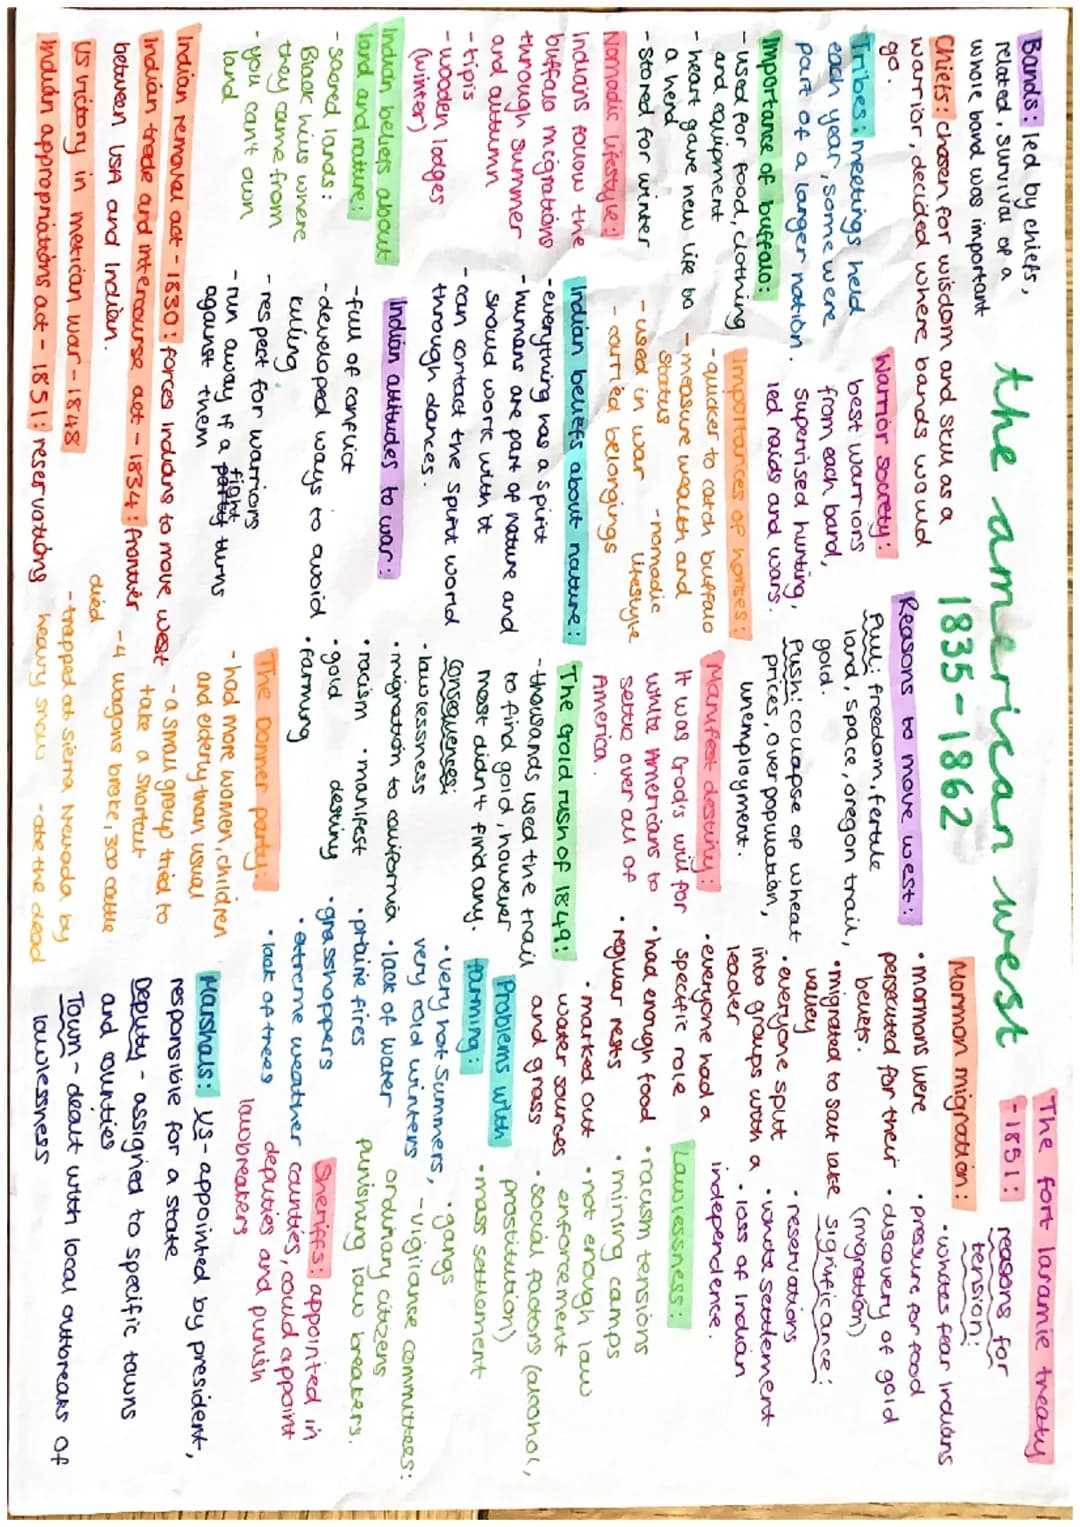 the american west
1835-1862
Bands: led by chiefs,
related, survival of a
whole band was important
Chiefs: chosen for wisdom and skill as a
warrior, decided where bands would
go.
Tribes: meetings held
each year, some were
part of a larger nation.
Importance of buffalo:
- used for food, clothing
and equipment
- heart gave new life to
a herd
- stored for winter
Nomadic lifestyle:
Indians follow the
buffalo migrations
through summer
and autumn
- tipis
- wooden lodges
(winter)
Indian beliefs about
land and nature:
- sacred lands:
Black hills where
they came from
- you can't own
land
Warrior society:
best warriors
from each band,
supervised hunting,
led raids and wars.
Importances of horses:
- quicker to catch buffalo
- measure wealth and
status
- used in war
- nomadic
lifestyle
- carried belongings
Indian beliefs about nature:
- everything has a spirit
- humans are part of nature and
should work with it
- can contact the spirit world
through dances.
Indian attitudes to war:
- full of conflict
- developed ways to avoid
killing
- respect for warriors
- run away if a fight turns
against them
Indian removal act - 1830: forces Indians to move west
Indian trade and intercourse act - 1834: frontier
between USA and Indian.
US victory in mexican war - 1848
Indian appropriations act - 1851: reservations
Reasons to move west:
Pull: freedom, fertile
land, space, oregon trail,
gold.
Push: collapse of wheat
prices, overpopulation,
unemployment.
Manifest destiny:
It was God's will for
white Americans to
settle over all of
America.
The Gold rush of 1849:
- thousands used the trail
to find gold, however
most didn't find any.
Consequences:
• lawlessness
• migration to california
• racism • manifest
destiny
• gold
• farming
The Donner party:
- had more women, children
and elderly than usual
- a small group tried to
take a shortcut
- 4 wagons broke, 300 cattle
died
- trapped at Sierra Nevada by
heavy snow - ate the dead
Mormon migration:
• mormons were
persecuted for their
beliefs.
• migrated to salt lake
valley
• everyone split
into groups with a
leader
• everyone had a
specific role
• had enough food
• regular rests
• marked out
water sources
and grass
Problems with
farming:
• very hot summers,
very cold winters
• lack of water
• prairie fires
• grasshoppers
• extreme weather
• lack of trees
The fort laramie treaty
- 1851:
reasons for
tension:
• whites fear Indians
• pressure for food
• discovery of gold
(migration)
significance:
• reservations
• white settlement
• loss of Indian
independence.
Lawlessness:
• racism tensions
• mining camps
• not enough law
enforcement
• social factors (alcohol,
prostitution)
• mass settlement
• gangs
- vigilance committees:
ordinary citizens
punishing law breakers.
Sheriffs: appointed in
counties, could appoint
deputies and punish
lawbreakers
Marshals: US - appointed by president,
responsible for a state
Deputy - assigned to specific towns
and counties
Town - dealt with local outbreaks of
lawlessness